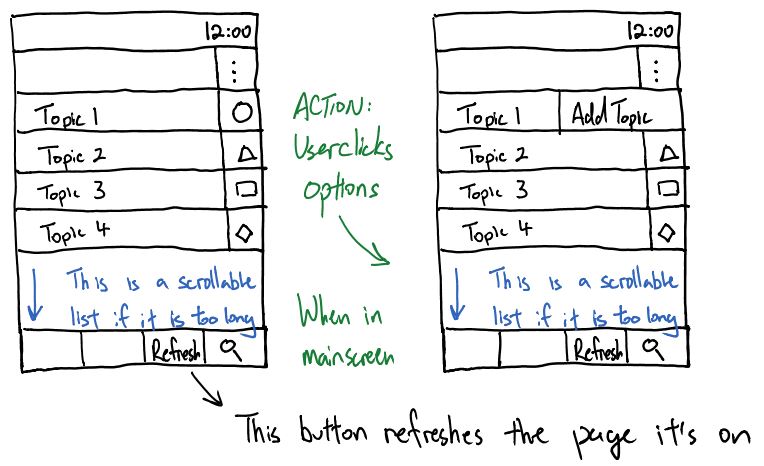 12:00
⋮
Topic 1
Topic 2
Topic 3
Topic 4
This is a scrollable
list if it is too long
Refresh
ACTION:
User clicks
options
When in
mainscreen
12:00
⋮
Topic 1 Add Topic
Topic 2
Topic 3
Topic 4
This is a scrollable
list if it is too long
Refresh
This button refreshes the page it's on